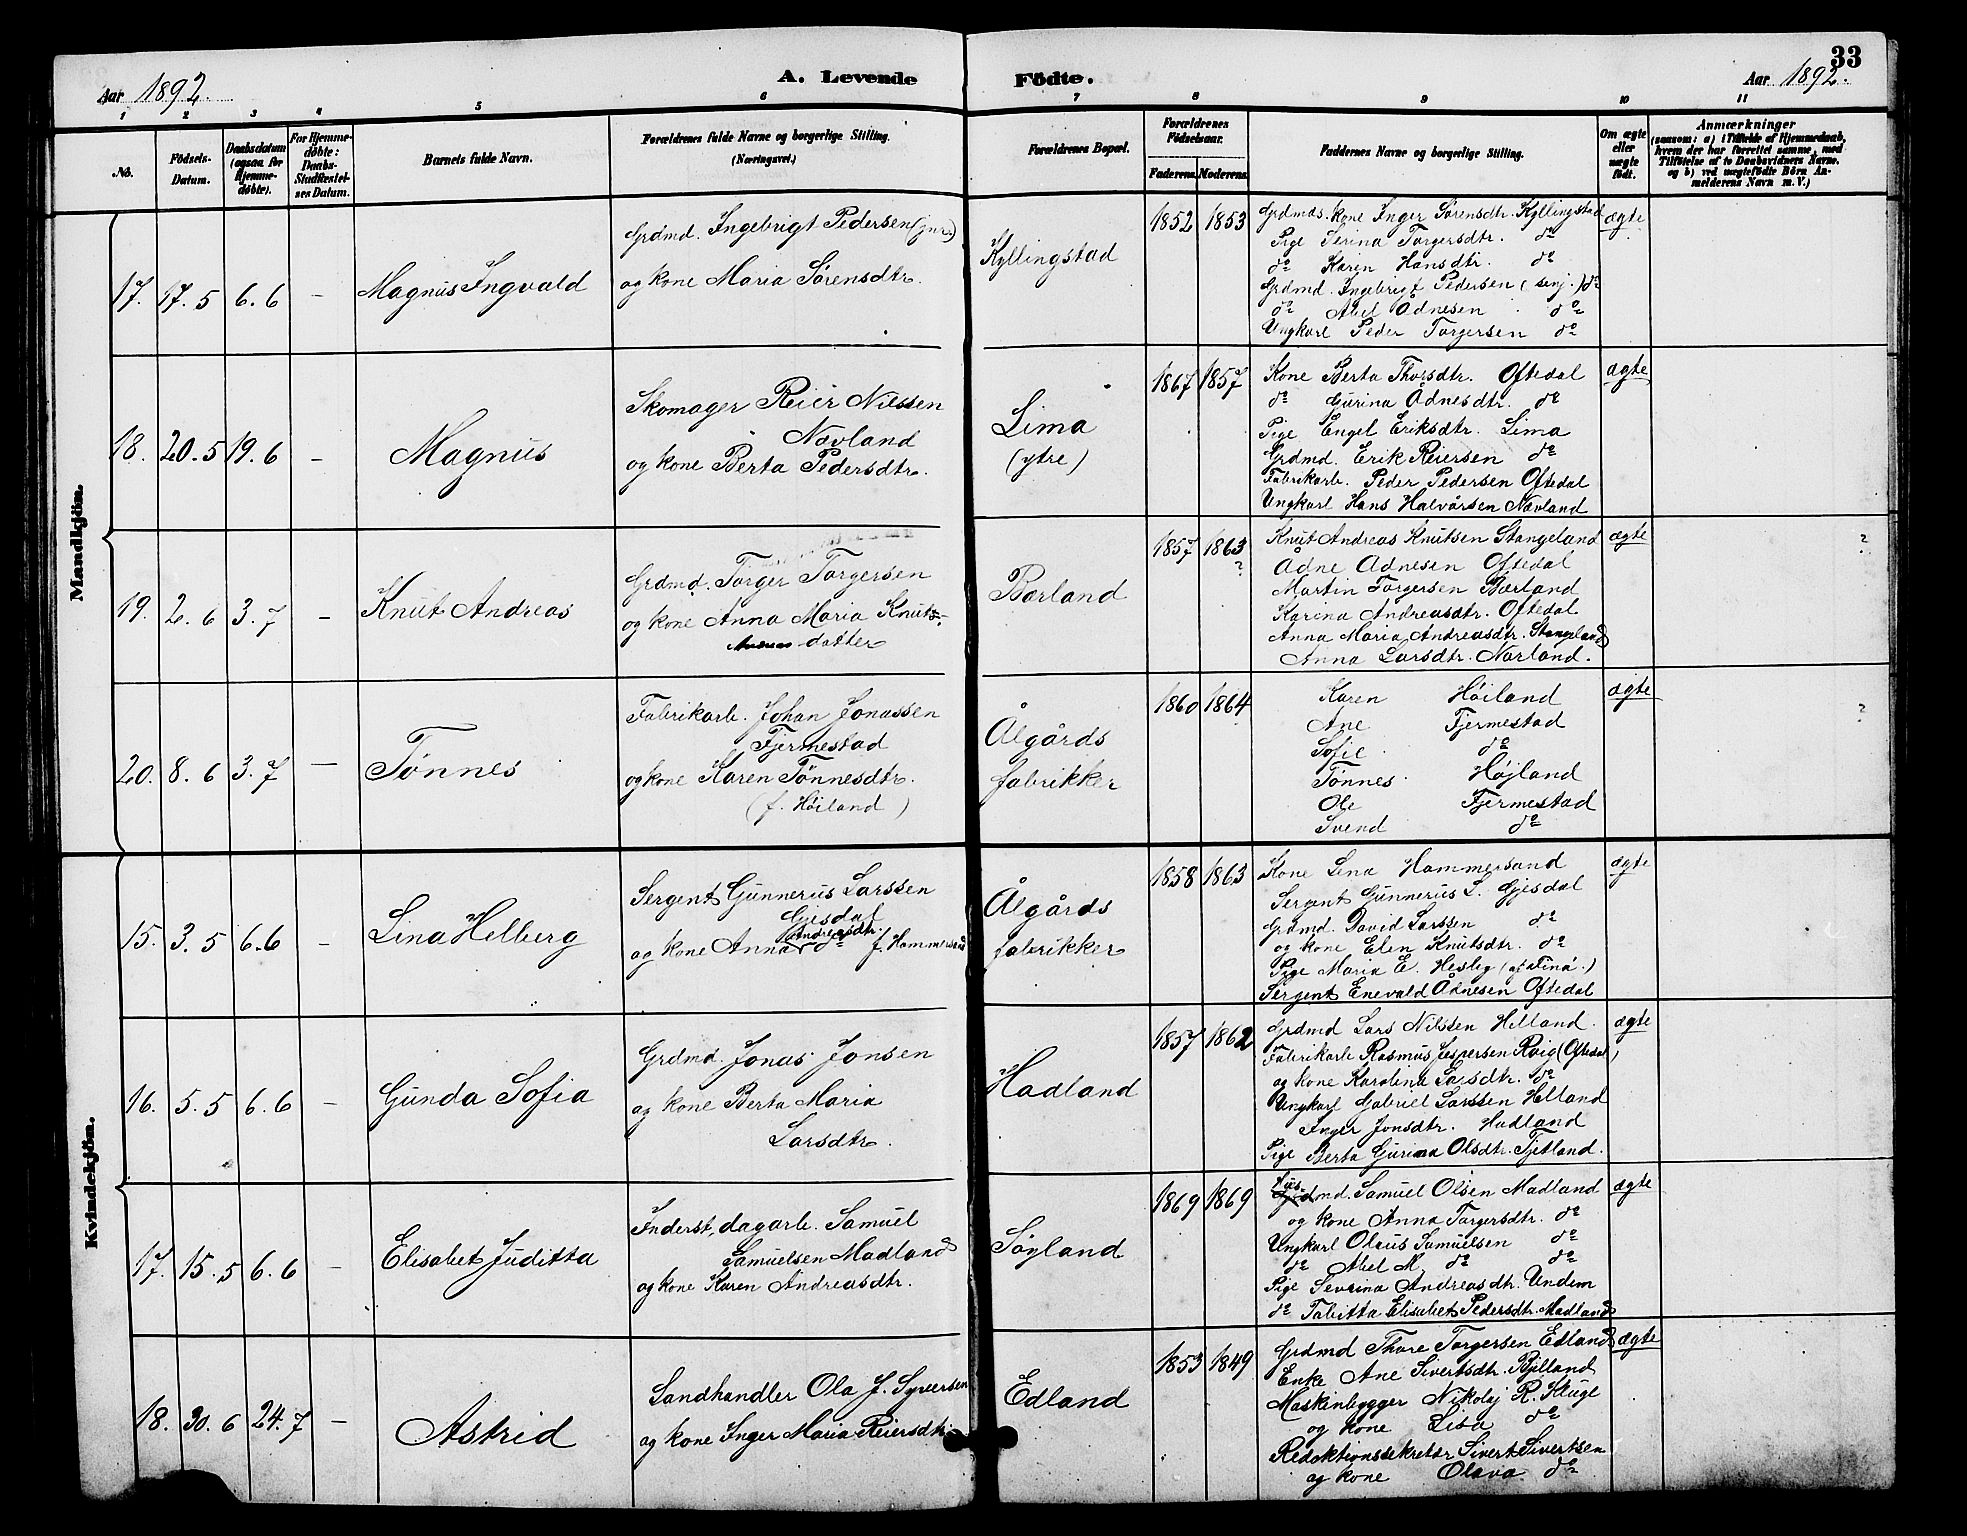 33
Aar 1892.
A. Levende Födte.
Aar 1892.
1 2 3 4 5 6 7 8 9 10 11
No.
Födsels-Datum.
Daabsdatum (ogsaa for Hjemme-døbte).
For Hjemme-døbte: Daabs-Stadfæstel-ses Datum.
Barnets fulde Navn.
Forældrenes fulde Navne og borgerlige Stilling.
(Næringsvei.)
Forældrenes Bopæl.
Forældrenes Födselsaar.
Faderens. Moderens.
Faddernes Navne og borgerlige Stilling.
Om ægte eller uægte födt.
Anmærkninger
(saasom: a) i Tilfælde af Hjemmedaab,
hvem der har forrettet samme, med
Tilföielse af to Daabsvidners Navne.
og b) ved uægtefödte Börn An-
melderens Navn m. V.)
Mandkjön.
17. 17. 5 6. 6 – Magnus Ingvald
Grdmd. Ingebrigt Pedersen (jnr.)
og kone Maria Sørensdtr.
Kyllingstad
1852 1853
Grdmds. kone Inger Sørensdtr. Kyllingstad
Pige Serina Torgersdtr. do
do Karen Hansdtr. do
Grdmd. Ingebrigt Pedersen (senj.) do
do Abel Ådnesen do
Ungkarl Peder Torgersen do
ægte
18. 20. 5 19. 6 – Magnus
Skomager Reier Nilssen
Nævland
og kone Berta Pedersdtr.
Lima
(ytre)
1867 1857
Kone Berta Thorsdtr. Oftedal
do Gurina Ådnesdtr. do
Pige Engel Eriksdtr. Lima
Grdmd. Erik Reiersen do
Fabrikarb. Peder Pedersen Oftedal
Ungkarl Hans Halvårsen Nævland
ægte
19. 2. 6 3. 7 – Knut Andreas
Grdmd. Torger Torgersen
og kone Anna Maria Knuts-
datter
Bærland
1857 1863
?
Knut Andreas Knutsen Stangeland
Ådne Adnesen Oftedal
Martin Torgersen Bærland
Karina Andreasdtr. Oftedal
Anna Maria Andreasdtr. Stangeland
Anna Larsdtr. Norland.
ægte
?
20. 8. 6 3. 7 – Tønnes
Fabrikarb. Johan Jonassen
Fjermestad
og kone Karen Tønnesdtr.
(f. Høiland)
Ålgårds
fabrikker
1860 1864
Karen Høiland
Ane Fjermestad
Sofie do
Tønnes Højland
Ole Fjermestad
Svend do
ægte
?
Kvindekjön.
15. 3. 5 6. 6 – Lina Helberg
Sergent Gunnerius Larssen
Gjesdal
Andreasdtr.
og kone Anna do f. Hammersand
Ålgårds
fabrikker
1858 1863
Kone Lena Hammersand
Sergent Gunnerius L. Gjesdal
Grdmd. David Larssen do
og kone Elen Knutsdtr. do
Pige Maria E.
Sergent Enevald Ådnesen Oftedal
ægte
16. 5. 5 6. 6 – Gunda Sofia
Grdmd. Jonas Jonsen
og kone Berta Maria
Larsdtr.
Hadland
1857 1862
Grdmd Lars Nilssen Helland.
Fabrikarb Rasmus Jespersen Roig (Oftedal)
og kone Karolina Larsdtr. do
Ungkarl Gabriel Larssen Helland
Inger Jonsdtr. Hadland
Pige Berta Gurina Olsdtr. Fjetland.
ægte
17. 15. 5 6. 6 – Elisabet Juditta
Inderst, dagarb. Samuel
Samuelsen Madland
og kone Karen Andreasdtr.
Søyland
1869 1869
Hus-
md. Samuel Olsen Madland
og kone Anna Torgersdtr. do
Ungkarl Olaus Samuelsen do
do Abel M. do do
Pige Sevrina Andreasdtr. Undem
do Tabitta Elisabet Pedersdtr. Madland
ægte
18. 30. 6 24. 7 – Astrid
Landhandler Ola J. Syversen
og kone Inger Maria Reiersdtr.
Edland
1853 1849
Grdmd Thore Torgersen Edland
Enke Ane Sivertsdtr. Bjelland
Maskinbygger Nikolaj R. Kluge
og kone Lisa do
Redaktionssekretær Sivert Sivertsen
og kone Olava do
ægte